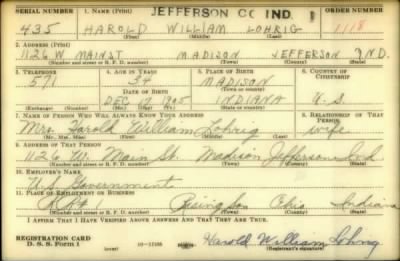 SERIAL NUMBER 1. NAME (Print) JEFFERSON CO IND. ORDER NUMBER
435 HAROLD WILLIAM LOHRIG 1118
(First) (Middle) (Last)
2. ADDRESS (Print)
1126 W MAIN ST MADISON JEFFERSON IND.
(Number and street or R. F. D. number) (Town) (County) (State)
3. TELEPHONE 4. AGE IN YEARS 5. PLACE OF BIRTH 6. COUNTRY OF CITIZENSHIP
571 34 MADISON
DATE OF BIRTH (Town or county)
DEC 16 1905 INDIANA U.S.
(Exchange) (Number) (Mo.) (Day) (Yr.) (State or country)
7. NAME OF PERSON WHO WILL ALWAYS KNOW YOUR ADDRESS 8. RELATIONSHIP OF THAT PERSON
Mrs. Harold William Lohrig wife
(Mr., Mrs., Miss) (First) (Middle) (Last)
9. ADDRESS OF THAT PERSON
1126 W. Main St. Madison Jefferson Ind
(Number and street or R. F. D. number) (Town) (County) (State)
10. EMPLOYER'S NAME
U.S. Government
11. PLACE OF EMPLOYMENT OR BUSINESS
Rising Sun Ohio Indiana
(Number and street or R. F. D. number) (Town) (County) (State)
I AFFIRM THAT I HAVE VERIFIED ABOVE ANSWERS AND THAT THEY ARE TRUE.
REGISTRATION CARD
D. S. S. Form 1 Harold William Lohrig
(Registrant's signature)